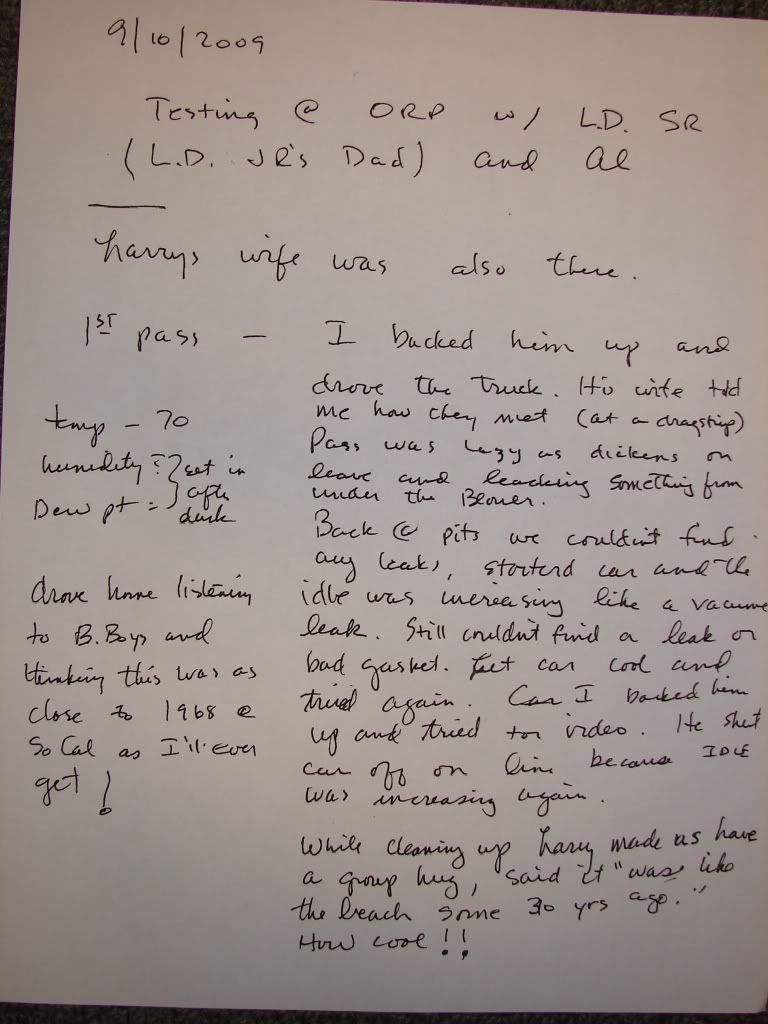 9/10/2009
Testing @ ORP w/ L.D. SR
(L.D. JR's Dad) and Al
Larrys wife was also there.
1ST pass - I backed him up and
drove the truck. His wife told
me how they met (at a dragstrip)
Pass was lazy as dickens on
leave and leacking something from
under the Blower.
Back @ pits we couldn't find
any leaks, starterd car and the
idle was increasing like a vacume
leak. Still couldn't find a leak or
bad gasket. Let car cool and
tried again. Car I backed him
up and tried for video. He shut
car off on line because IDLE
was increasing again.
While cleaning up Larry made us have
a group hug, said it "was like
the beach some 30 yrs ago."
How cool!!
temp - 70
humidity?
Dew pt =
set in
after
dusk
drove home listening
to B.Boys and
thinking this was as
close to 1968 @
So Cal as I'll ever
get!